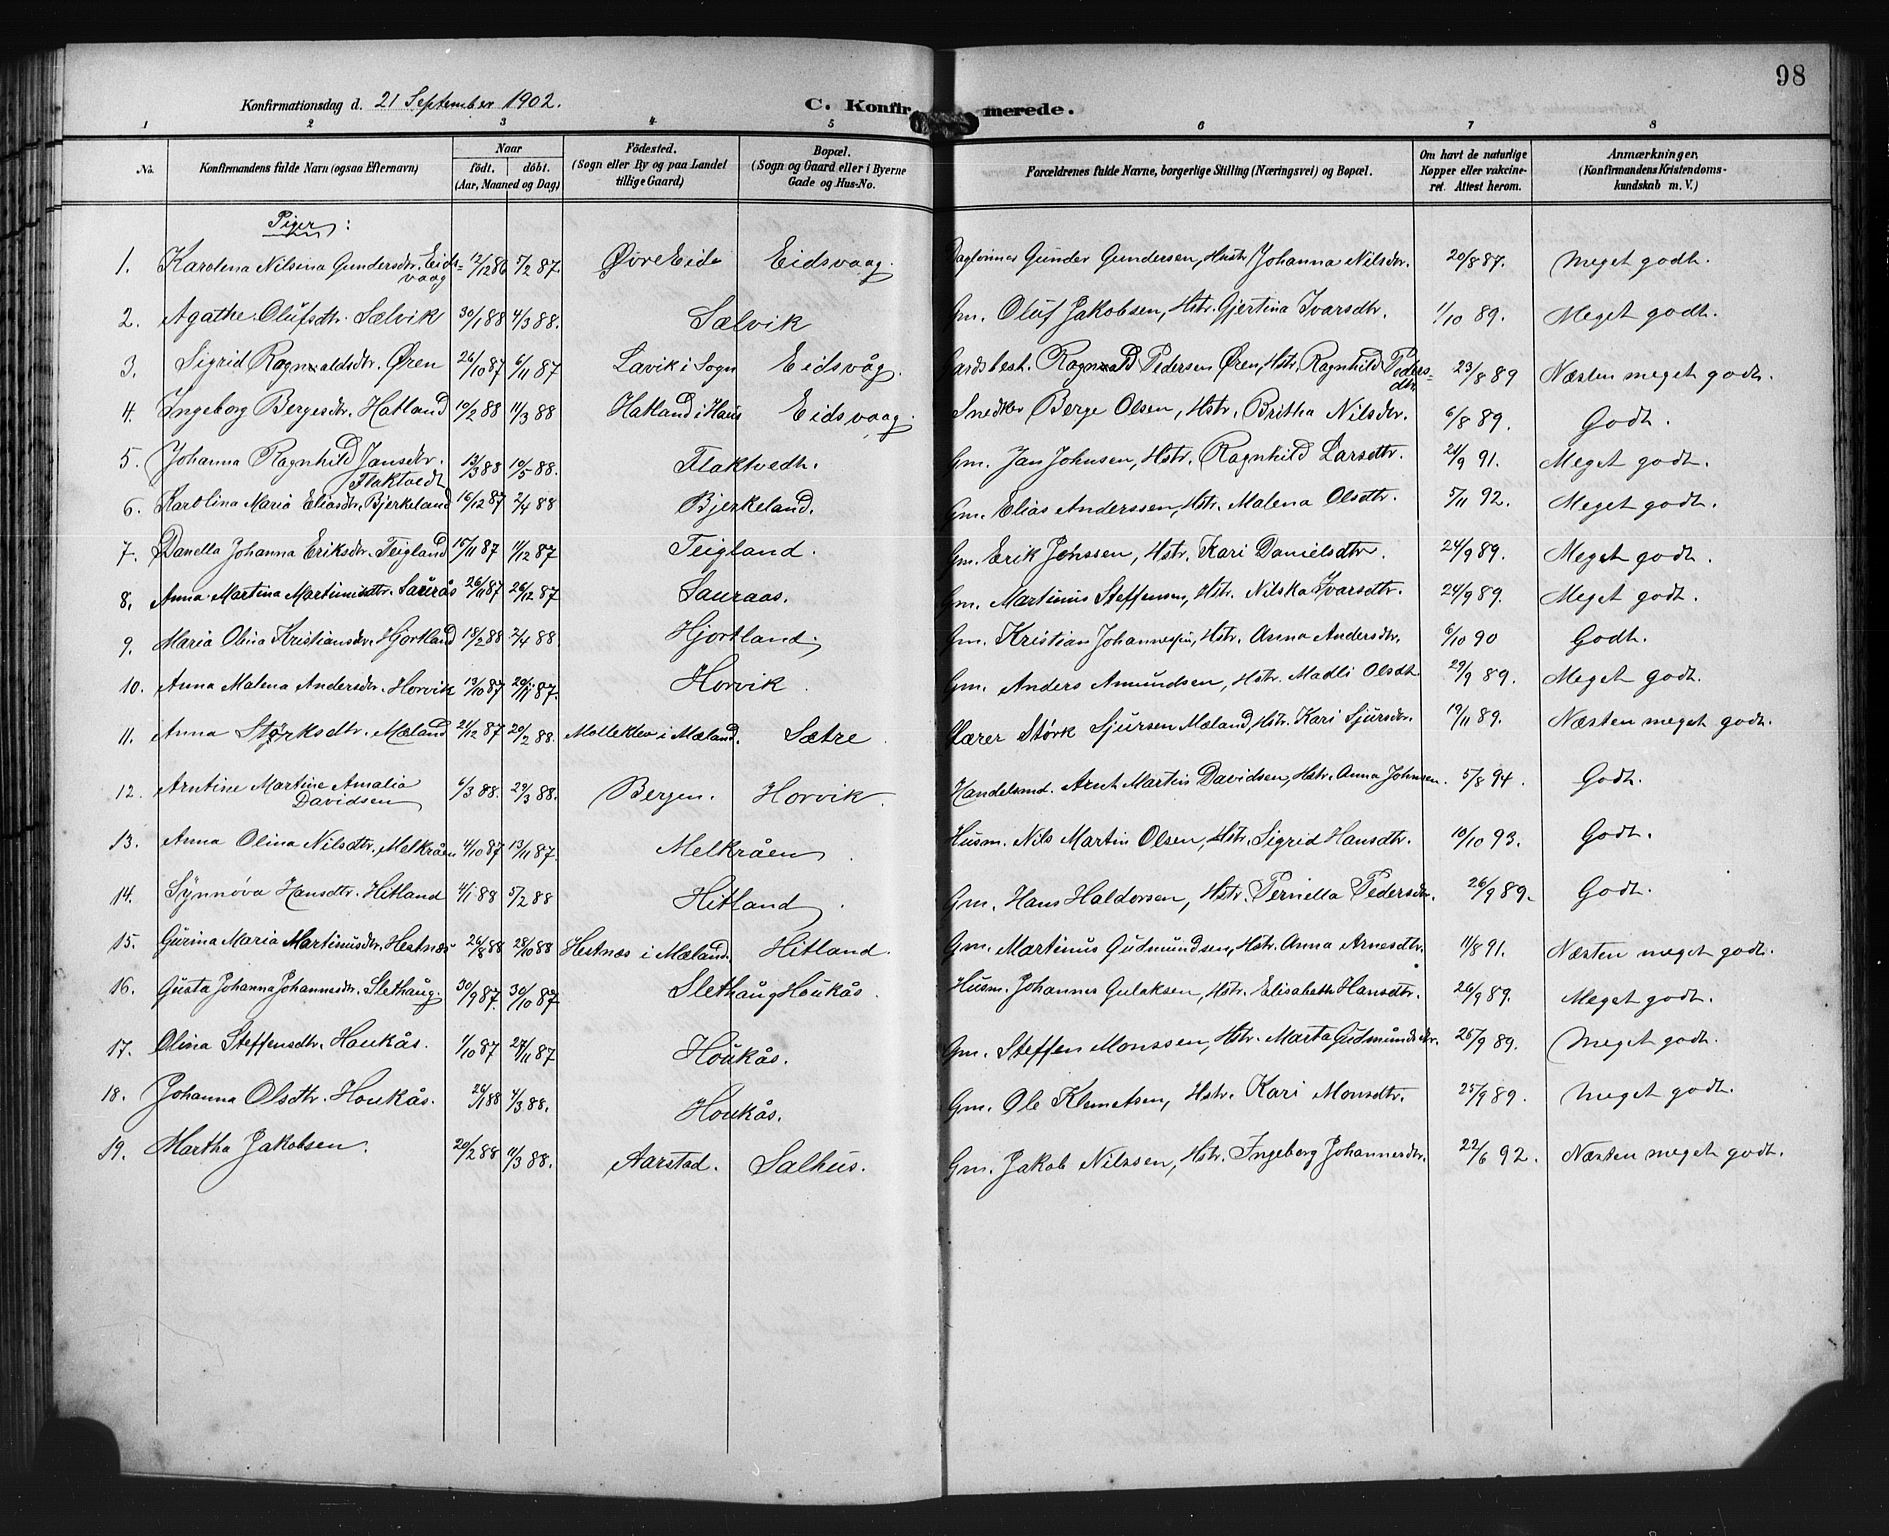 98
Konfirmationsdag d. 21 September 1902. C. Konfirmerede.
1 2 3 4 5 6 7 8
No. Konfirmandens fulde Navn (ogsaa Efternavn) Naar født. døbt. (Aar, Maaned og Dag) Födested. (Sogn eller By og paa Landet tillige Gaard) Bopæl. (Sogn og Gaard eller i Byerne Gade og Hus-No. Forældrenes fulde Navne, borgerlige Stilling (Næringsvei) og Bopæl. Om havt de naturlige Kopper eller vakcineret. Attest herom. Anmærkninger. (Konfirmandens Kristendomskundskab m. V.)
Piger:
1. Karolena Nilsina Gundersdtr. Eidsvaag 12/12 86 5/2 87 Øvre Eide Eidsvaag. Daglönner Gunder Gundersen, Hustr. Johanna Nilsdtr. 20/8 87. Meget godt.
2. Agathe Olufsdtr. Sælvik 30/1 88 4/3 88. Sælvik Gm. Oluf Jakobsen, Hstr. Gjertina Ivarsdtr. 1/10 89. Meget godt.
3. Sigrid Ragnvaldsdtr. Øren 26/10 87 6/11 87 Lavik i Sogn Eidsvåg. Gardbest. Ragnvald Pedersen Øren, Hstr. Ragnhild Pedersdtr 23/8 89 Næsten meget godt.
4. Ingeborg Bergesdtr. Hatland 10/2 88 11/3 88 Hatland i Haus Eidsvaag. Snedker Berge Olsen, Hstr. Britha Nilsdtr. 6/8 89. Godt.
5. Johanna Ragnhild Jansdtr. Flaktvedt 13/3 88 10/5 88. Flaktvedt. Gm. Jan Johnsen, Hstr. Ragnhild Larsdtr. 21/9 91. Meget godt.
6. Karolina Maria Eliasdtr. Bjerkeland 16/12 87 2/4 88 Bjerkeland. Gm. Elias Anderssen, Hstr. Malena Olsdtr. 5/11 92. Meget godt.
7. Danella Johanna Eriksdtr. Teigland 15/11 87 11/12 87 Teigland. Gm. Erik Jenssen, Hstr. Kari Danielsdtr. 24/9 89. Meget godt.
8. Anna Martina Martinusdtr. Saurås 26/11 87 26/12 87 Sauraas. Gm. Martinus Steffensen, Hstr. Nilska Ivarsdtr. 24/9 89. Meget godt.
9. Maria Olina Kristiansdtr. Hjortland 18/2 88 2/4 88 Hjortland. Gm. Kristian Johannessen, Hstr. Anna Andersdtr. 6/10 90 Godt.
10. Anna Malena Andersdtr. Horvik 19/10 87 20/11 87. Horvik. Gm. Anders Amundsen, Hstr. Madli Olsdt 29/9 89. Meget godt.
11. Anna Størksdtr. Mæland 21/12 87 20/2 88. Molleklev i Mæland. Sætre. Lærer Størk Sjursen Mæland, Hstr. Kari Sjursdtr. 19/11 89. Næsten meget godt.
12. Arntine Martine Amalia Davidsen 6/3 88. 29/3 88. Bergen. Horvik. Handelsmd. Arnt Martin Davidsen, Hstr. Anna Johnsen. 5/8 94. Godt.
13. Anna Olina Nilsdtr. Melkråen 4/10 87 13/11 87. Melkråen. Husm. Nils Martin Olsen, Hstr. Sigrid Hansdtr. 10/10 93. Godt.
14. Synnøva Hansdtr. Hitland 4/1 88 5/2 88 Hitland. Gm. Hans Haldorsen, Hstr. Pernella Pedersdtr. 26/9 89. Godt.
15. Gurina Maria Martinusdtr. Hestnæs 26/8 88 28/10 88 Hestnæs i Mæland. Hitland. Gm. Martinus Gudmundsen, Hstr. Anna Arnesdtr. 11/8 91. Næsten meget godt.
16. Gusta Johanna Johannesdtr. Slethaug. 30/9 87. 30/10 87 Slethaug Houkås. Husm. Johannes Gulaksen, Hstr. Elisabeth Hansdtr. 26/9 89. Meget godt.
17. Olina Steffensdtr. Houkås. 1/10 87 27/11 87 Houkås. Gm. Steffen Monssen, Hstr. Marta Gudmundsdtr. 25/9 89. Meget godt.
18. Johanna Olsdtr. Houkås. 26/1 88 4/3 88. Houkås. Gm. Ole Klemetsen, Hstr. Kari Monsdtr. 25/9 89. Meget godt.
19. Martha Jakobsen. 20/2 88 11/3 88. Aarstad. Salhus. Gm. Jakob Nilssen, Hstr. Ingeborg Johannesdtr. 22/6 92. Næsten meget godt.